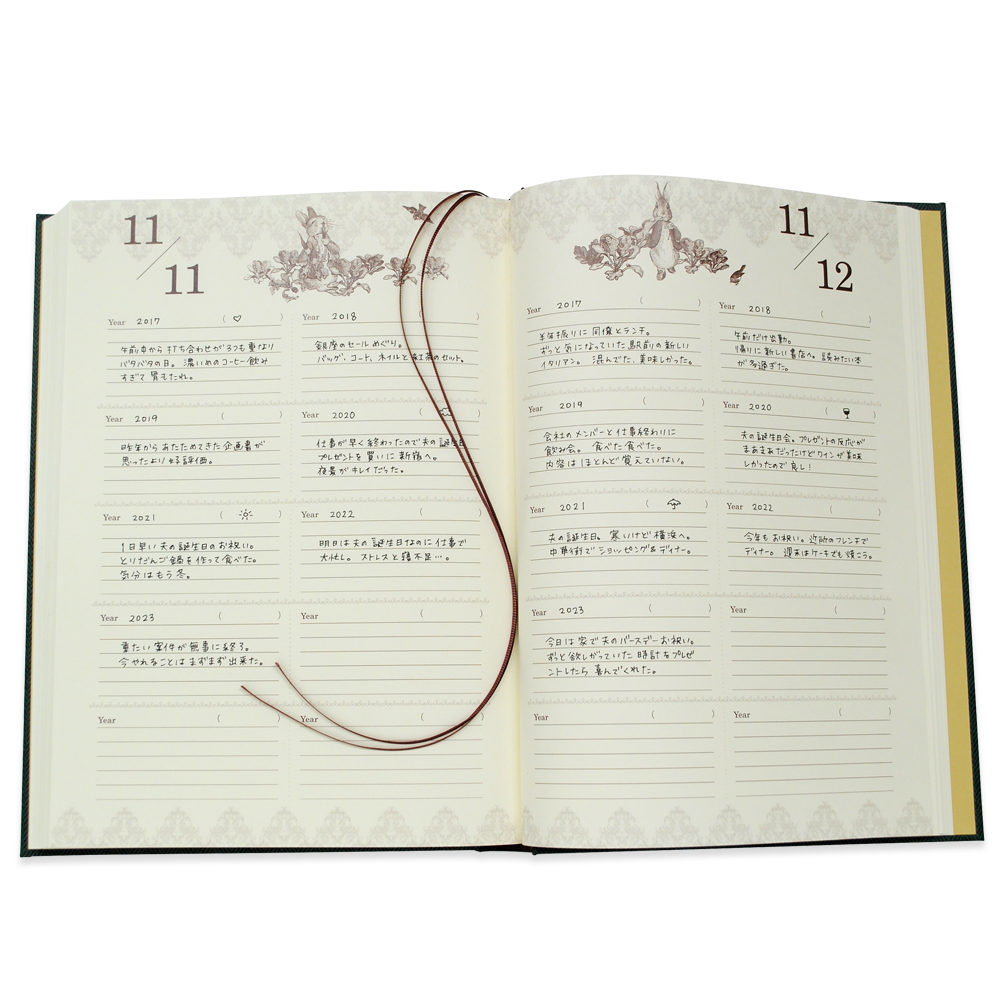 11
11
Year 2017 ( ♡ )
午前中から打ち合わせが3つも重なり
バタバタの日。濃いめのコーヒー飲み
すぎて胃もたれ。
Year 2018 ( )
銀座のセールめぐり。
バッグ、コート、ネイルと
のセット。
Year 2019 ( )
昨年からあたためてきた企画書が
思ったより好評価。
Year 2020 ( )
仕事が早く終わったので夫の誕生日
プレゼントを買いに新宿へ。
夜景がキレイだった。
Year 2021 ( )
1日早い夫の誕生日のお祝い。
とりだんご鍋を作って食べた。
気分はもう冬。
Year 2022 ( )
明日は夫の誕生日なのに仕事で
大忙し。ストレスと寝不足…。
Year 2023 ( )
重たい案件が無事に終了。
今やれることはまずまず出来た。
Year ( )
Year ( )
Year ( )
11
12
Year 2017 ( )
半年振りに同僚とランチ。
ずっと気になっていた駅前の新しい
イタリアン。混んでた、美味しかった。
Year 2018 ( )
午前だけ出勤。
帰りに新しい書店へ。読みたい本
が多過ぎた。
Year 2019 ( )
会社のメンバーと仕事終わりに
飲み会。食べた食べた。
内容はほとんど覚えていない。
Year 2020 ( )
夫の誕生日会。プレゼントの反応が
まあまあだったけどワインが美味
しかったので良し!
Year 2021 ( )
夫の誕生日。寒いけど横浜へ。
中華街でショッピング&ディナー。
Year 2022 ( )
今年もお祝い。近所のフレンチで
ディナー。週末はケーキでも焼こう。
Year 2023 ( )
今日は家で夫のバースデーお祝い。
ずっと欲しがっていた時計をプレゼ
ントしたら喜んでくれた。
Year ( )
Year ( )
Year ( )